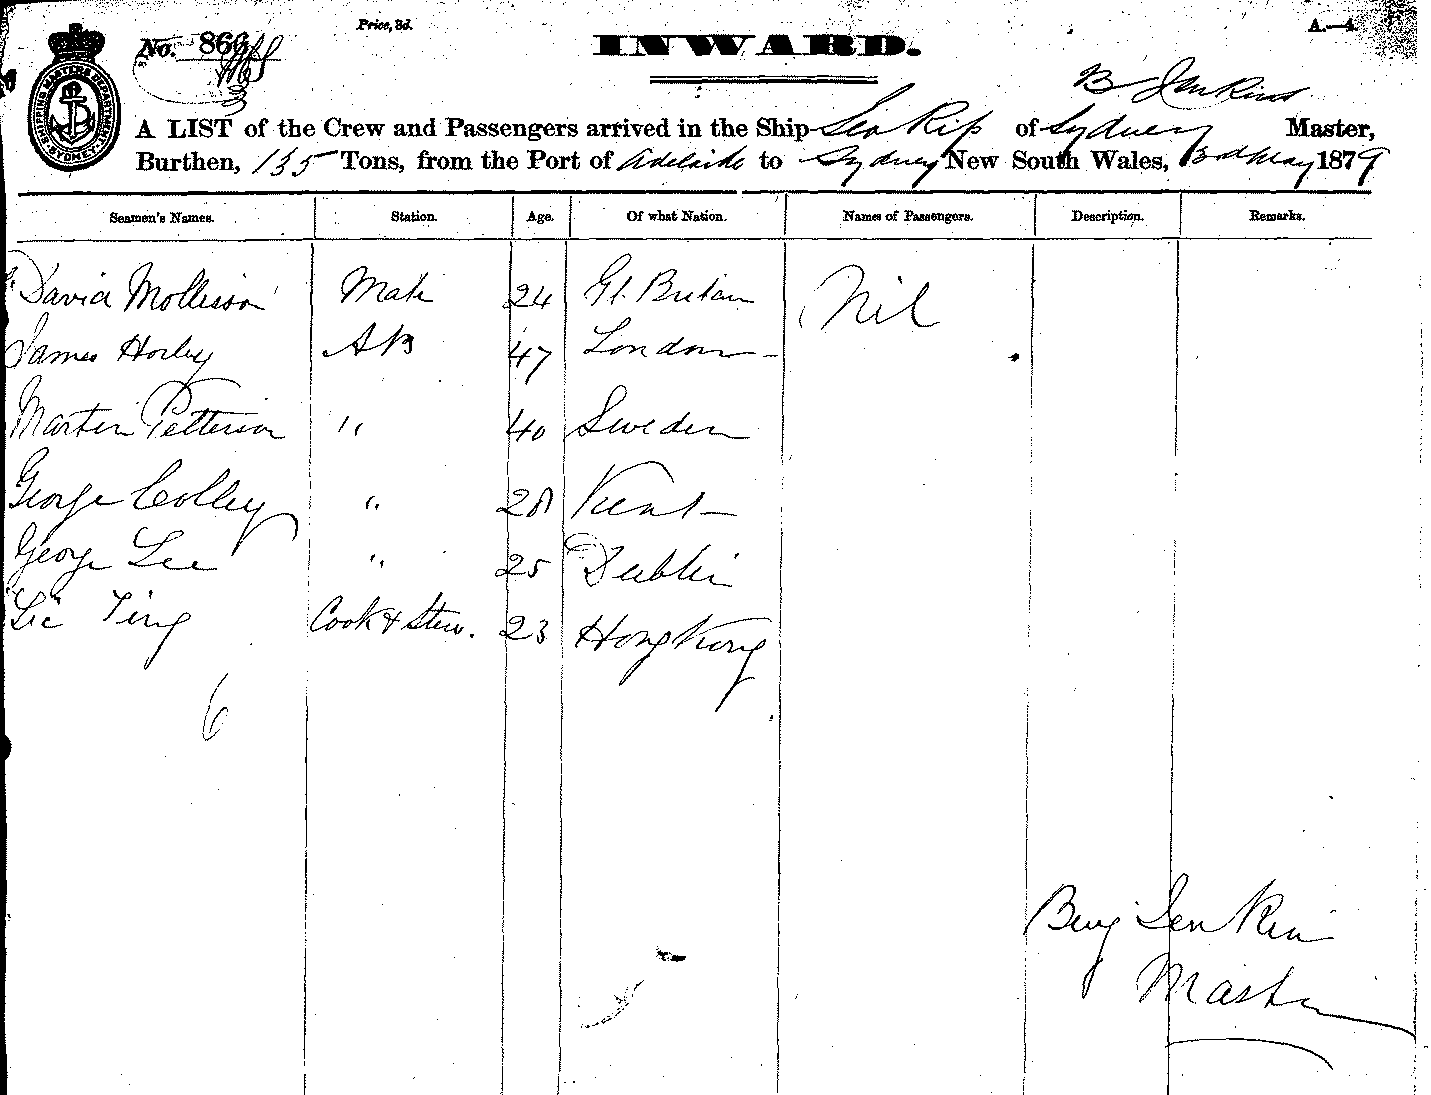 Price, 3d.
A.—4.
No. 866
INWARD.
SHIPPING MASTERS DEPARTMENT SYDNEY
B Jenkins
A LIST of the Crew and Passengers arrived in the Ship Sea Rip of Sydney Master,
Burthen, 135 Tons, from the Port of Adelaide to Sydney New South Wales, 3rd May 1879
Seamen's Names. Station. Age. Of what Nation. Names of Passengers. Description. Remarks.
David Mollison Mate 24 Gt. Britain Nil
James Horley AB 47 London
Martin Petterson " 40 Sweden
George Colley " 28 Kent
George Lee " 25 Dublin
Lie Ting Cook & Stew. 23 Hong Kong
6
Benj Jenkin
Master